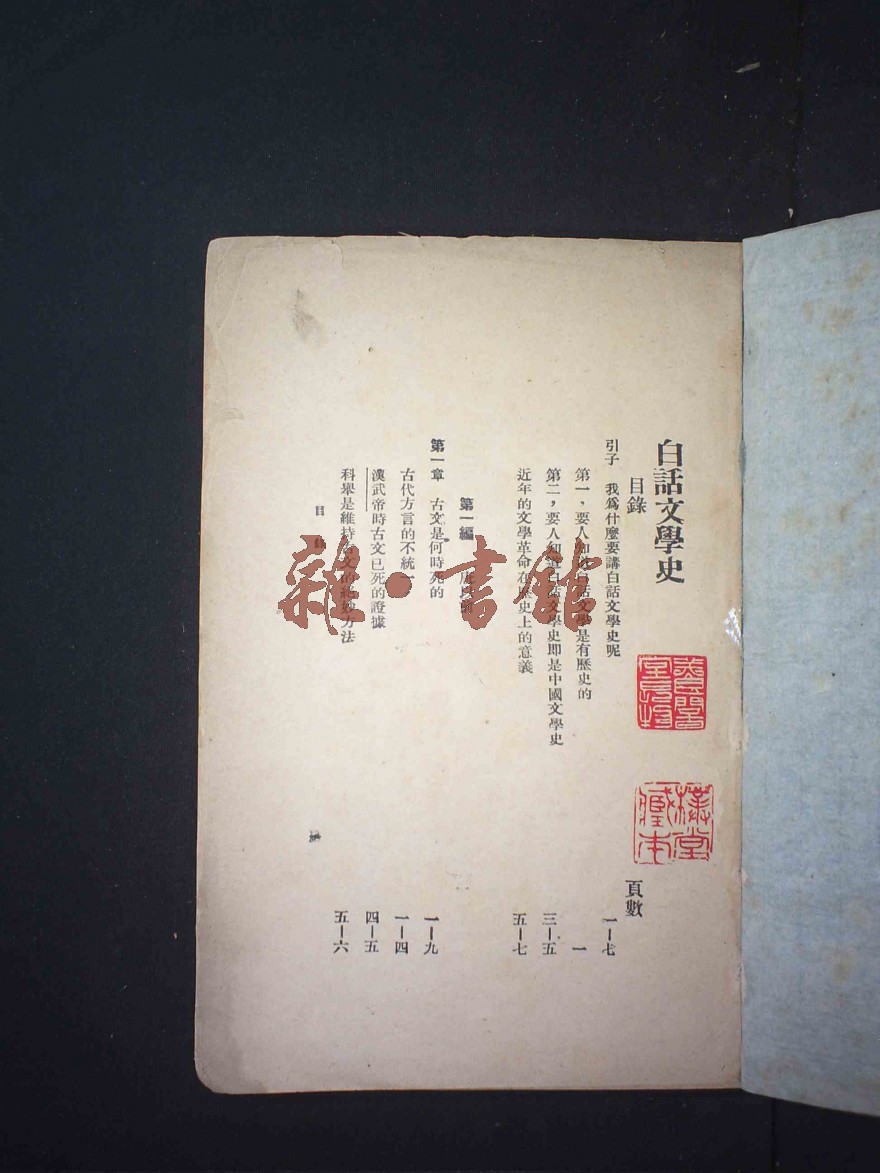 白話文學史
目錄
頁數
引子 我爲什麼要講白話文學史呢 一—七
第一，要人知道白話文學是有歷史的 一
第二，要人知道白話文學史即是中國文學史 三—五
近年的文學革命在歷史上的意義 五—七
第一編 唐以前
第一章 古文是何時死的 一—九
古代方言的不統一 一—四
漢武帝時古文已死的證據 四—五
科舉是維持古文的絕妙方法 五—六
目
雜·書館
樸堂
藏本